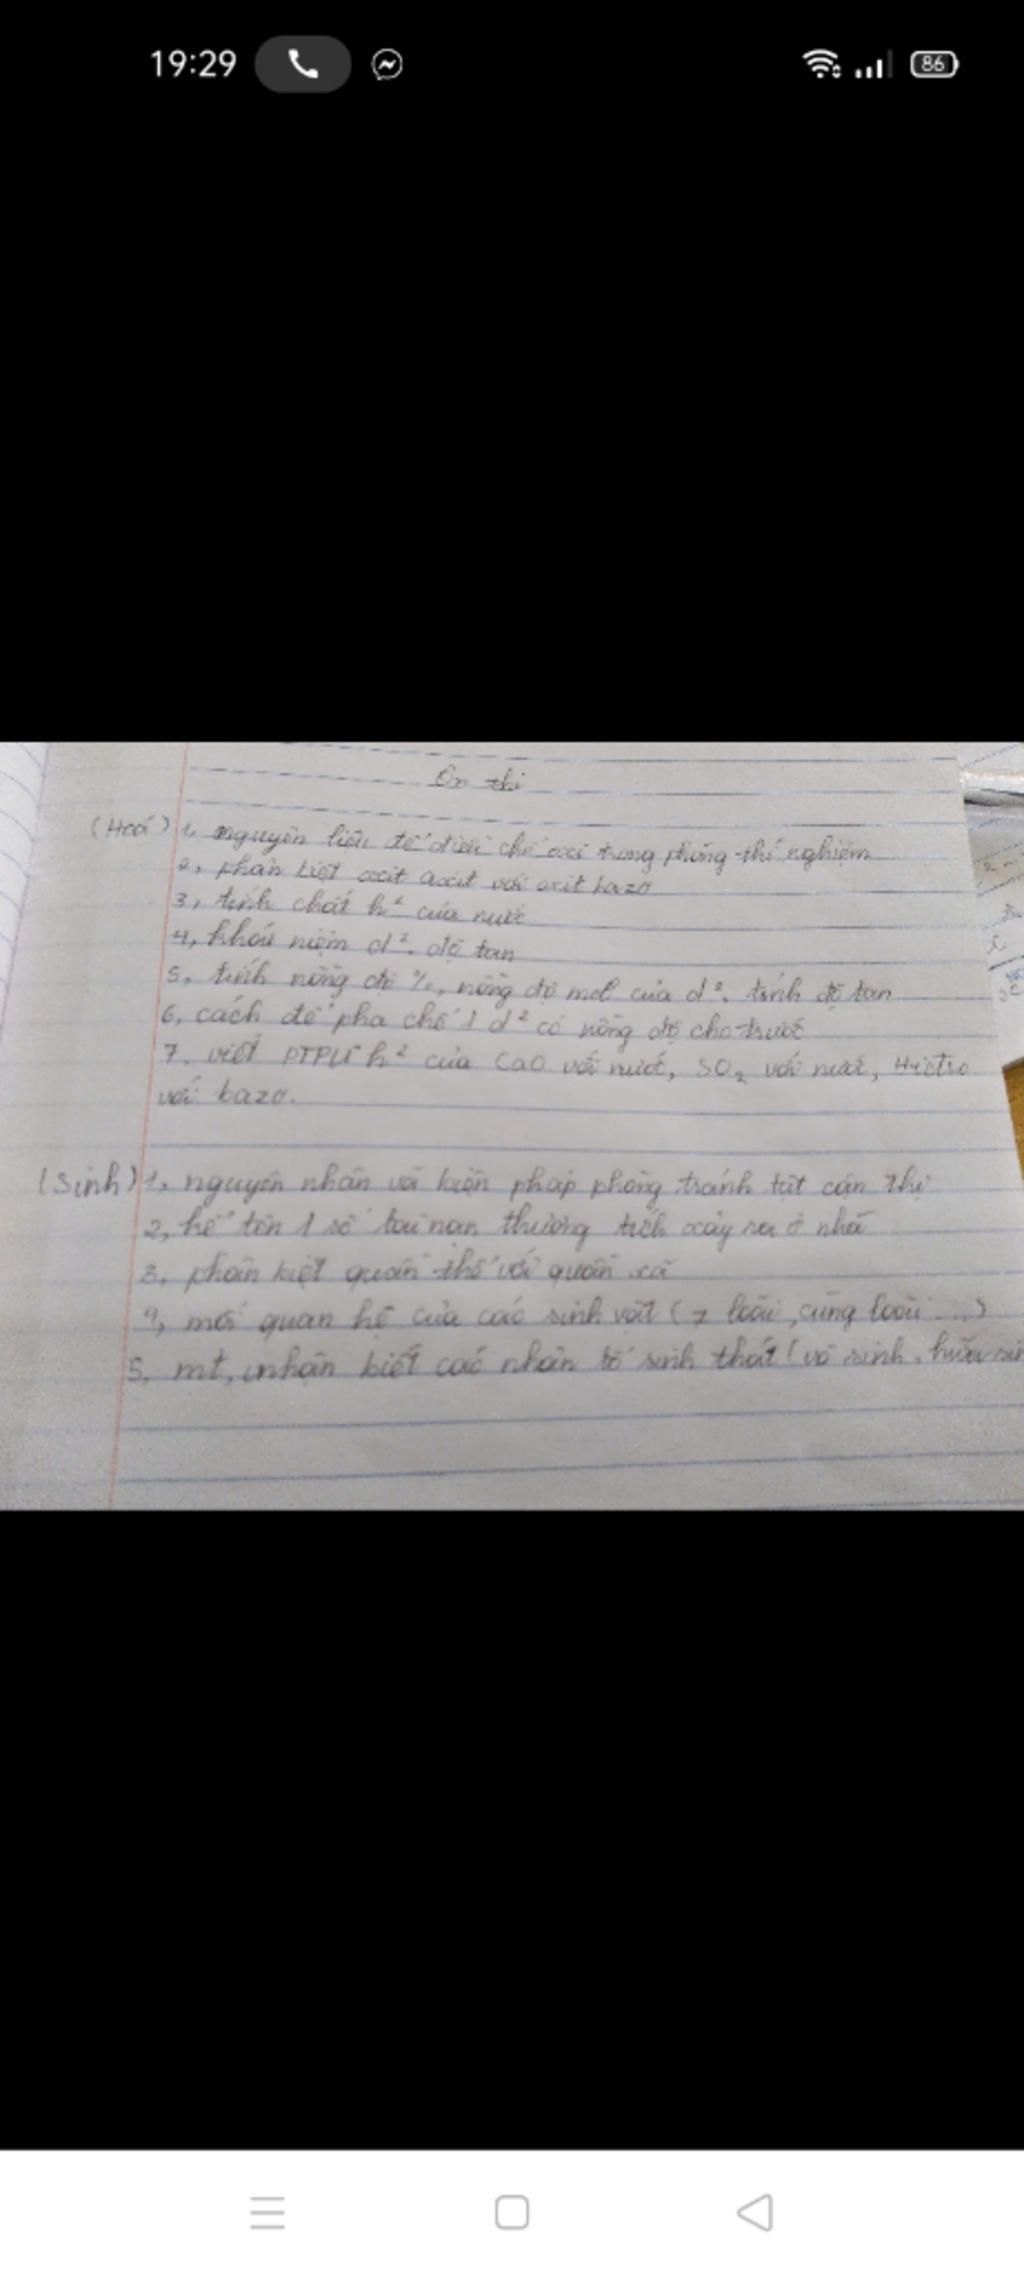 19:29
86
Ôn thi
(Hoá) 1, nguyên liệu để điều chế oxi trong phòng thí nghiệm
2, phân biệt oxit axit với oxit bazơ
3, tính chất h² của nước
4, khái niệm d², độ tan
5, tính nồng độ %, nồng độ mol của d², tính độ tan
6, cách để pha chế 1 d² có nồng độ cho trước
7, viết PTPƯ h² của CaO với nước, SO₂ với nước,
với bazơ.
(Sinh) 1, nguyên nhân và biện pháp phòng tránh tật cận thị
2, kể tên 1 số tai nạn thương tích xảy ra ở nhà
3, phân biệt quần thể với quần xã
4, mối quan hệ của các sinh vật (≠ loài, cùng loài ...)
5, mt, nhận biết các nhân tố sinh thát (vô sinh, hữu sin